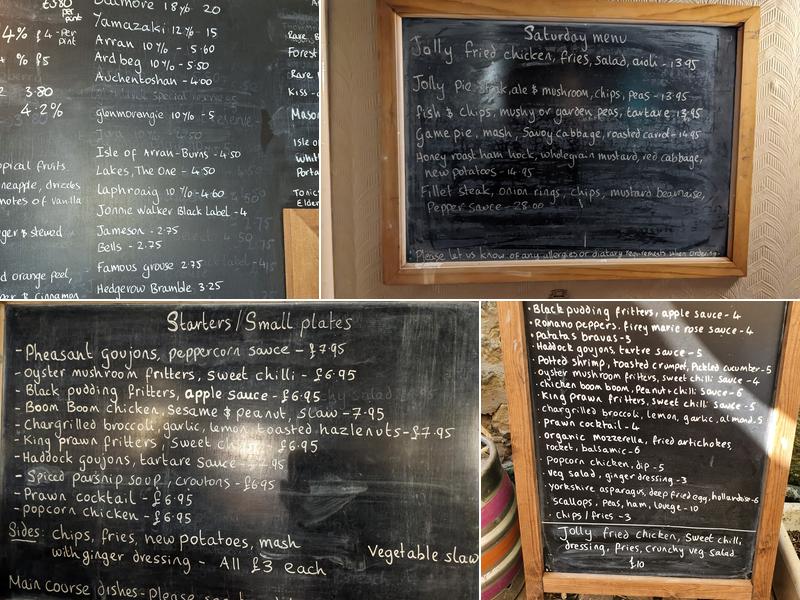 £5.80
per
pint
4% £4 - per
pint
% £5
3.80
4.2%
opical fruits
neapple, drizzles
notes of vanilla
ger & stewed
d orange peel,
per & cinnamon
Dalmore 18yo. 20
Yamazaki 12yo - 15
Arran 10yo - 5.60
Ard beg 10yo - 5.50
Auchentoshan - 4.00
glenmorangie 10yo - 5
Isle of Arran-Burns - 4.50
Lakes, The One - 4.50
Laphroaig 10yo - 4.60
Jonnie Walker Black Label - 4
Jameson - 2.75
Bells - 2.75
Famous grouse 2.75
Hedgerow Bramble 3.25
Rare
Forest
Rare
Kiss
Mason
Isle
Whit
Porta
Tonics
Elder
Saturday menu
Jolly fried chicken, fries, salad, aioli - 13.95
Jolly pie steak, ale & mushroom, chips, peas - 13.95
fish & chips, mushy or garden peas, tartare - 13.95
Game pie, mash, Savoy cabbage, roasted carrot - 14.95
Honey roast ham hock, wholegrain mustard, red cabbage,
new potatoes - 14.95
Fillet steak, onion rings, chips, mustard bearnaise,
Pepper sauce - 28.00
Please let us know of any allergies or diatary requirements when ordering
Starters/Small plates
- Pheasant goujons, peppercorn sauce - £7.95
- Oyster mushroom fritters, sweet chilli - £6.95
- Black pudding fritters, apple sauce - £6.95
- Boom Boom chicken, Sesame & peanut, slaw - 7.95
- Chargrilled broccoli, garlic, lemon, toasted hazlenuts - £7.95
- King prawn fritters, sweet chilli £6.95
- Haddock goujons, tartare sauce - 7.95
- Spiced parsnip soup, croutons - £6.95
- Prawn cocktail - £6.95
- popcorn chicken - £6.95
Sides: chips, fries, new potatoes, mash
with ginger dressing - All £3 each
Vegetable slaw
Main course dishes - please
· Black pudding fritters, apple sauce - 4
· Romano peppers, firey marie rose sauce - 4
· patatas bravas - 3
· Haddock goujons, tartre sauce - 5
· Potted shrimp, toasted crumpet, Pickled cucumber - 5
· oyster mushroom fritters, sweet chilli sauce - 4
· chicken boom boom, Peanut + chilli sauce - 6
· King Prawn fritters, sweet chilli sauce - 5
· chargrilled broccoli, lemon, garlic, almond. 5
· Prawn cocktail - 4
· organic mozzerella, fried artichokes,
rocket, balsamic - 6
· Popcorn chicken, dip - 5
· veg salad, ginger dressing - 3
· yorkshire asparagus, deep fried egg, hollandaise - 6
· scallops, peas, ham, lovage - 10
· chips / fries - 3
Jolly fried chicken, sweet chilli,
dressing, fries, crunchy veg salad
£10